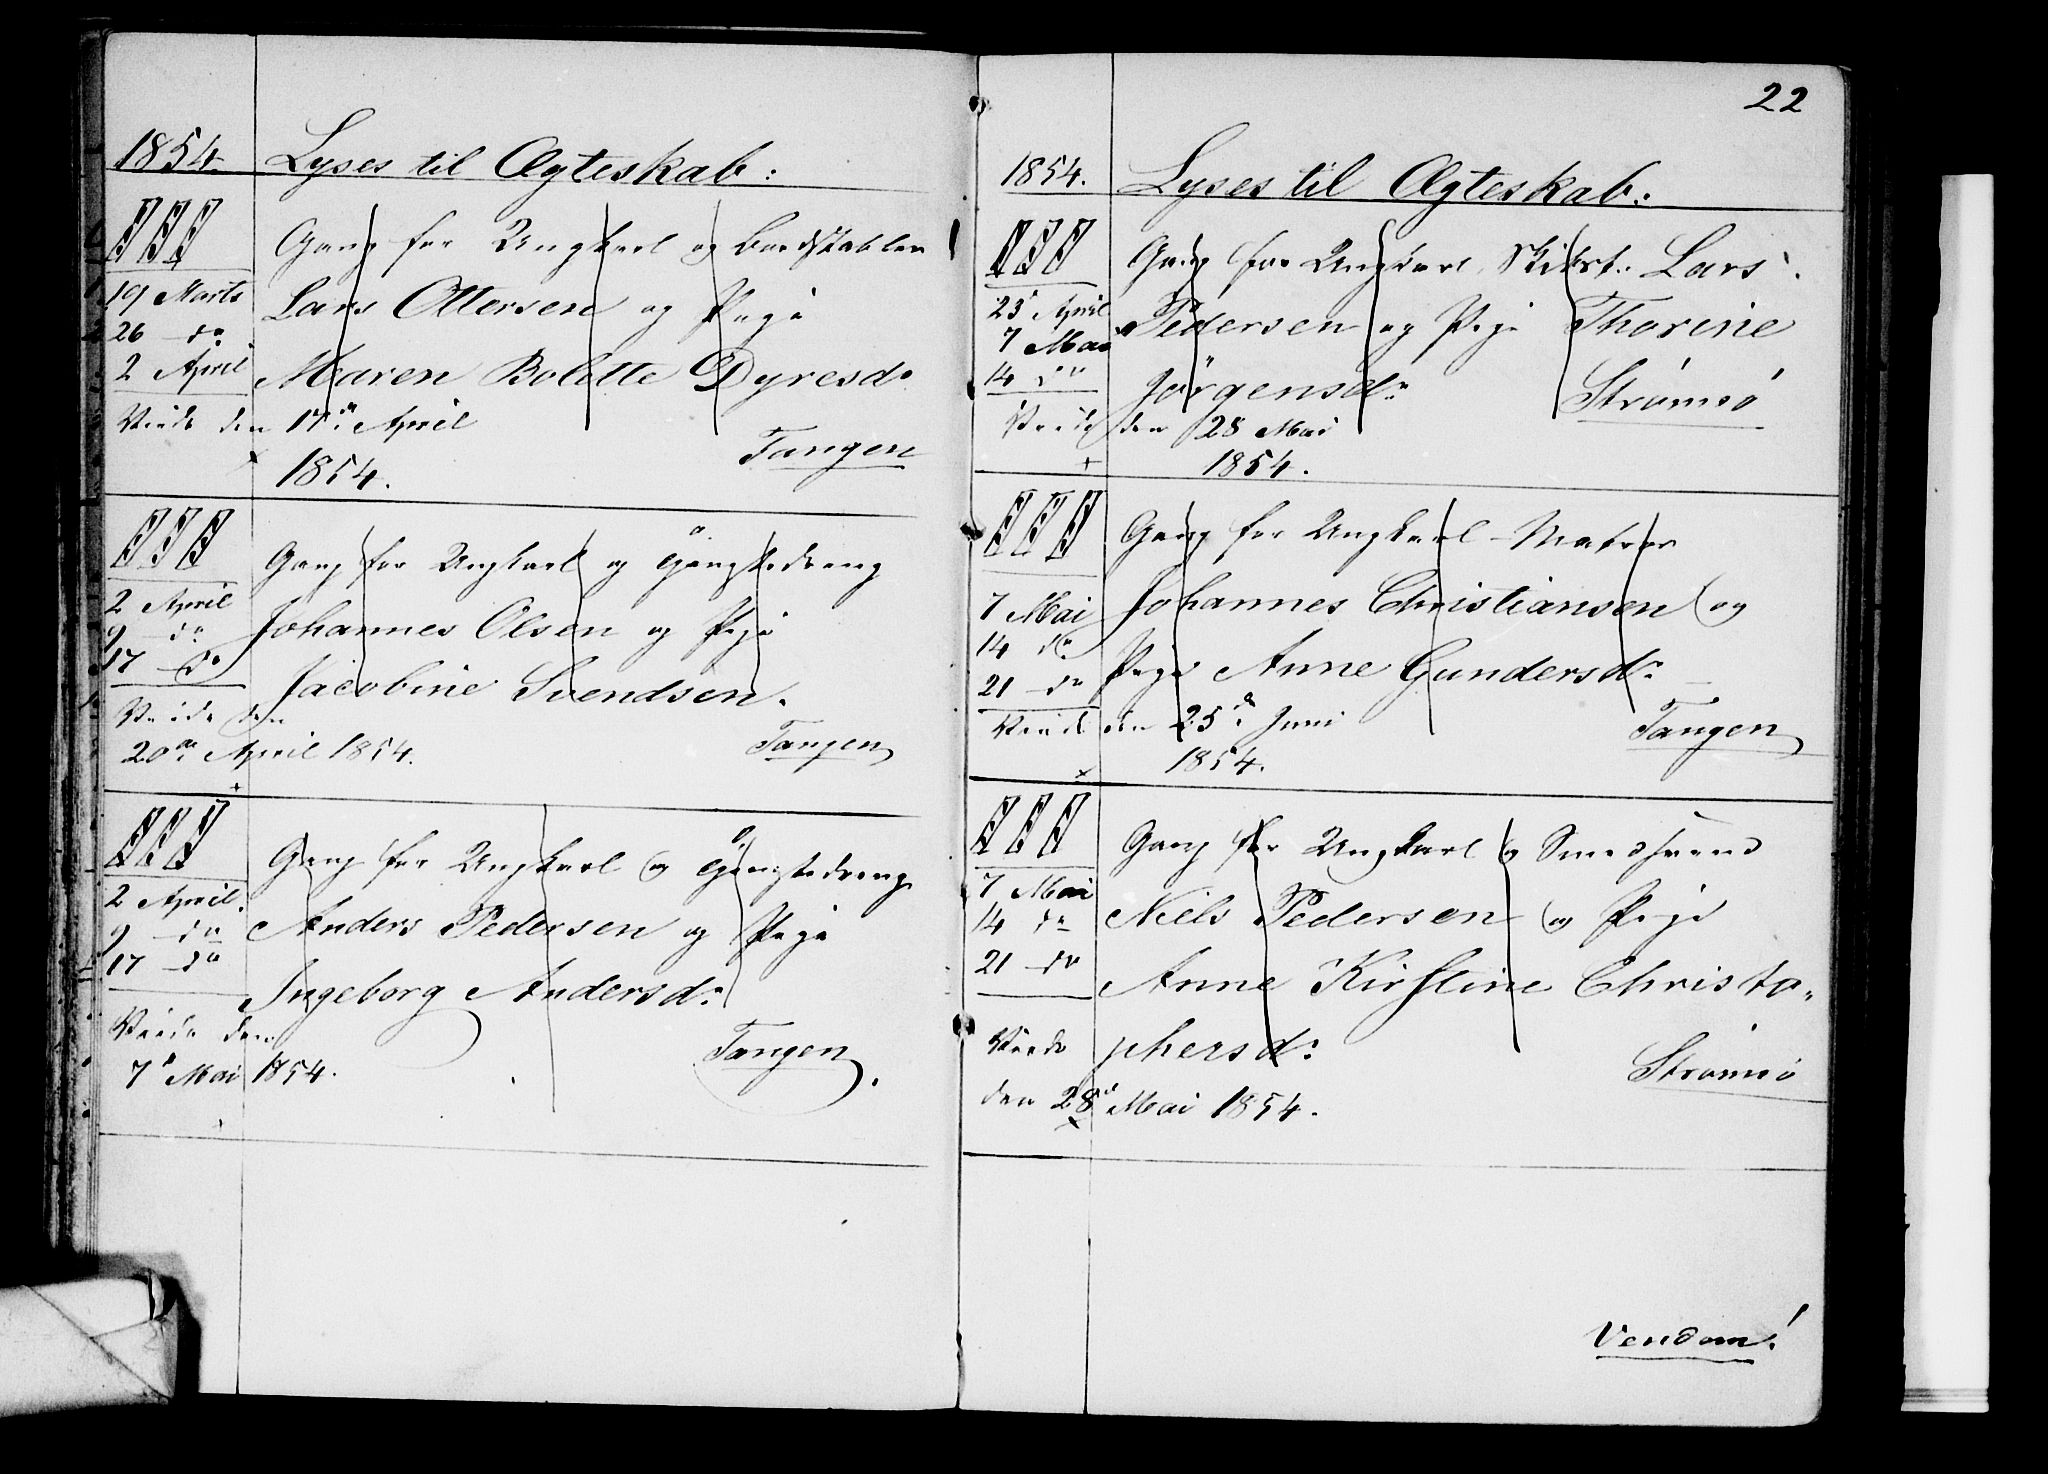 1854.
Lyses til Ægteskab:
III
Gang for Ungkarl og Bordstabler
19 Marts
Lars Ottersen og Pige
26 do
2 April
Maren Bolette Dyresdr
Viede den 17de April
1854.
Tangen
III
Gang for Ungkarl og
2 April
Johannes Olsen og Pige
9 do
17 do
Jacobine Svendsen.
Viede den
20de April 1854.
Tangen
III
Gang for Ungkarl og
2 April.
Anders Pedersen og Pige
9 do
17 do
Ingeborg Andersdr
Viede den
7d Mai 1854.
Tangen.
22
1854.
Lyses til Ægteskab:
III
Gang for Ungkarl Skibst. Lars
April
Pedersen og Pige Thorine
7 Mai
14 do
Jørgensdr
Strømsö
Viede den 28 Mai
1854.
III
Gang for Ungkarl Matros
7 Mai
Johannes Christiansen og
14 do
Pige Anne Gundersdr
21 do
Viede den 25de Juni
Tangen
1854.
III
Gang for Ungkarl og Smedsvend
7 Mai
Niels Pedersen og Pige
14 do
21 do
Anne Kirstine Christo-
Viede
phersdr
Strømsö
den 28d Mai 1854.
Vendom!